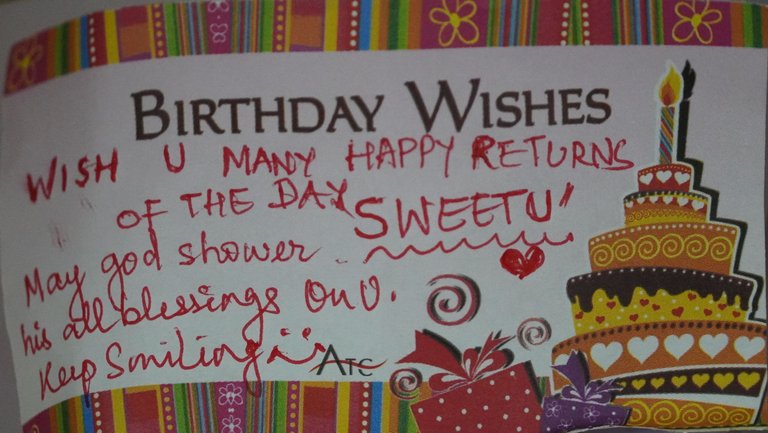 BIRTHDAY WISHES
WISH U MANY HAPPY RETURNS
OF THE DAY SWEETU'
May god shower
his all blessings On U.
Keep Smiling
ATC